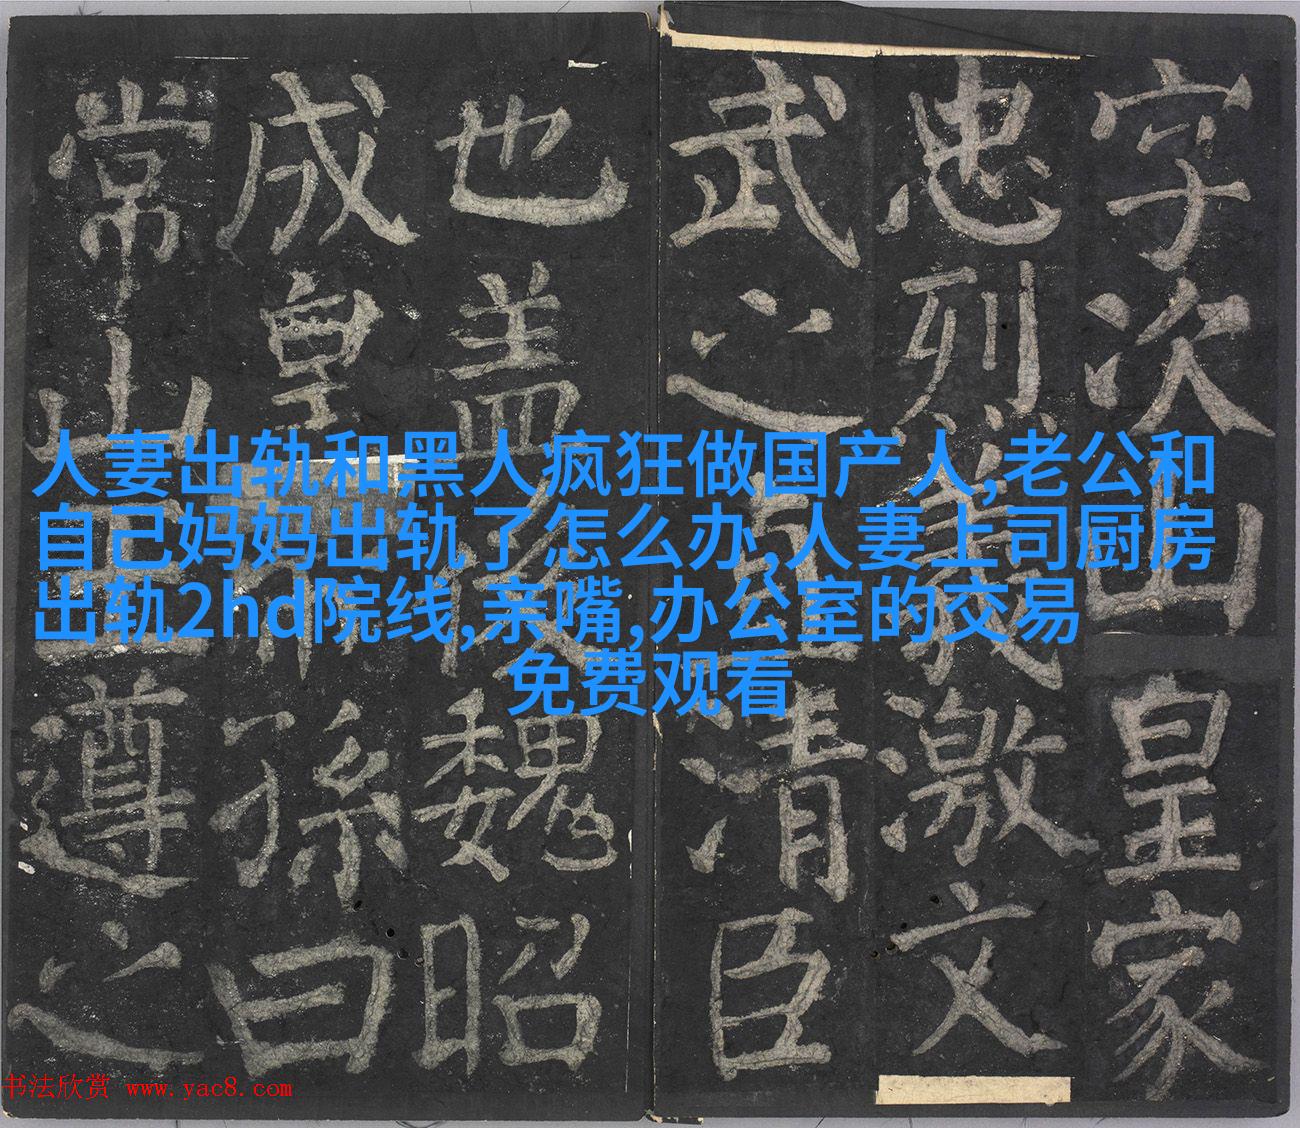 字次山皇家
忠烈義激文
武之直清臣
也盖後魏昭
成皇帝孫曰
常山王遵之
人妻出轨和黑人疯狂做国产人,老公和
自己妈妈出轨了怎么办,人妻上司厨房
出轨2hd院线,亲嘴,办公室的交易
免费观看
书法欣赏 www.yac8.com